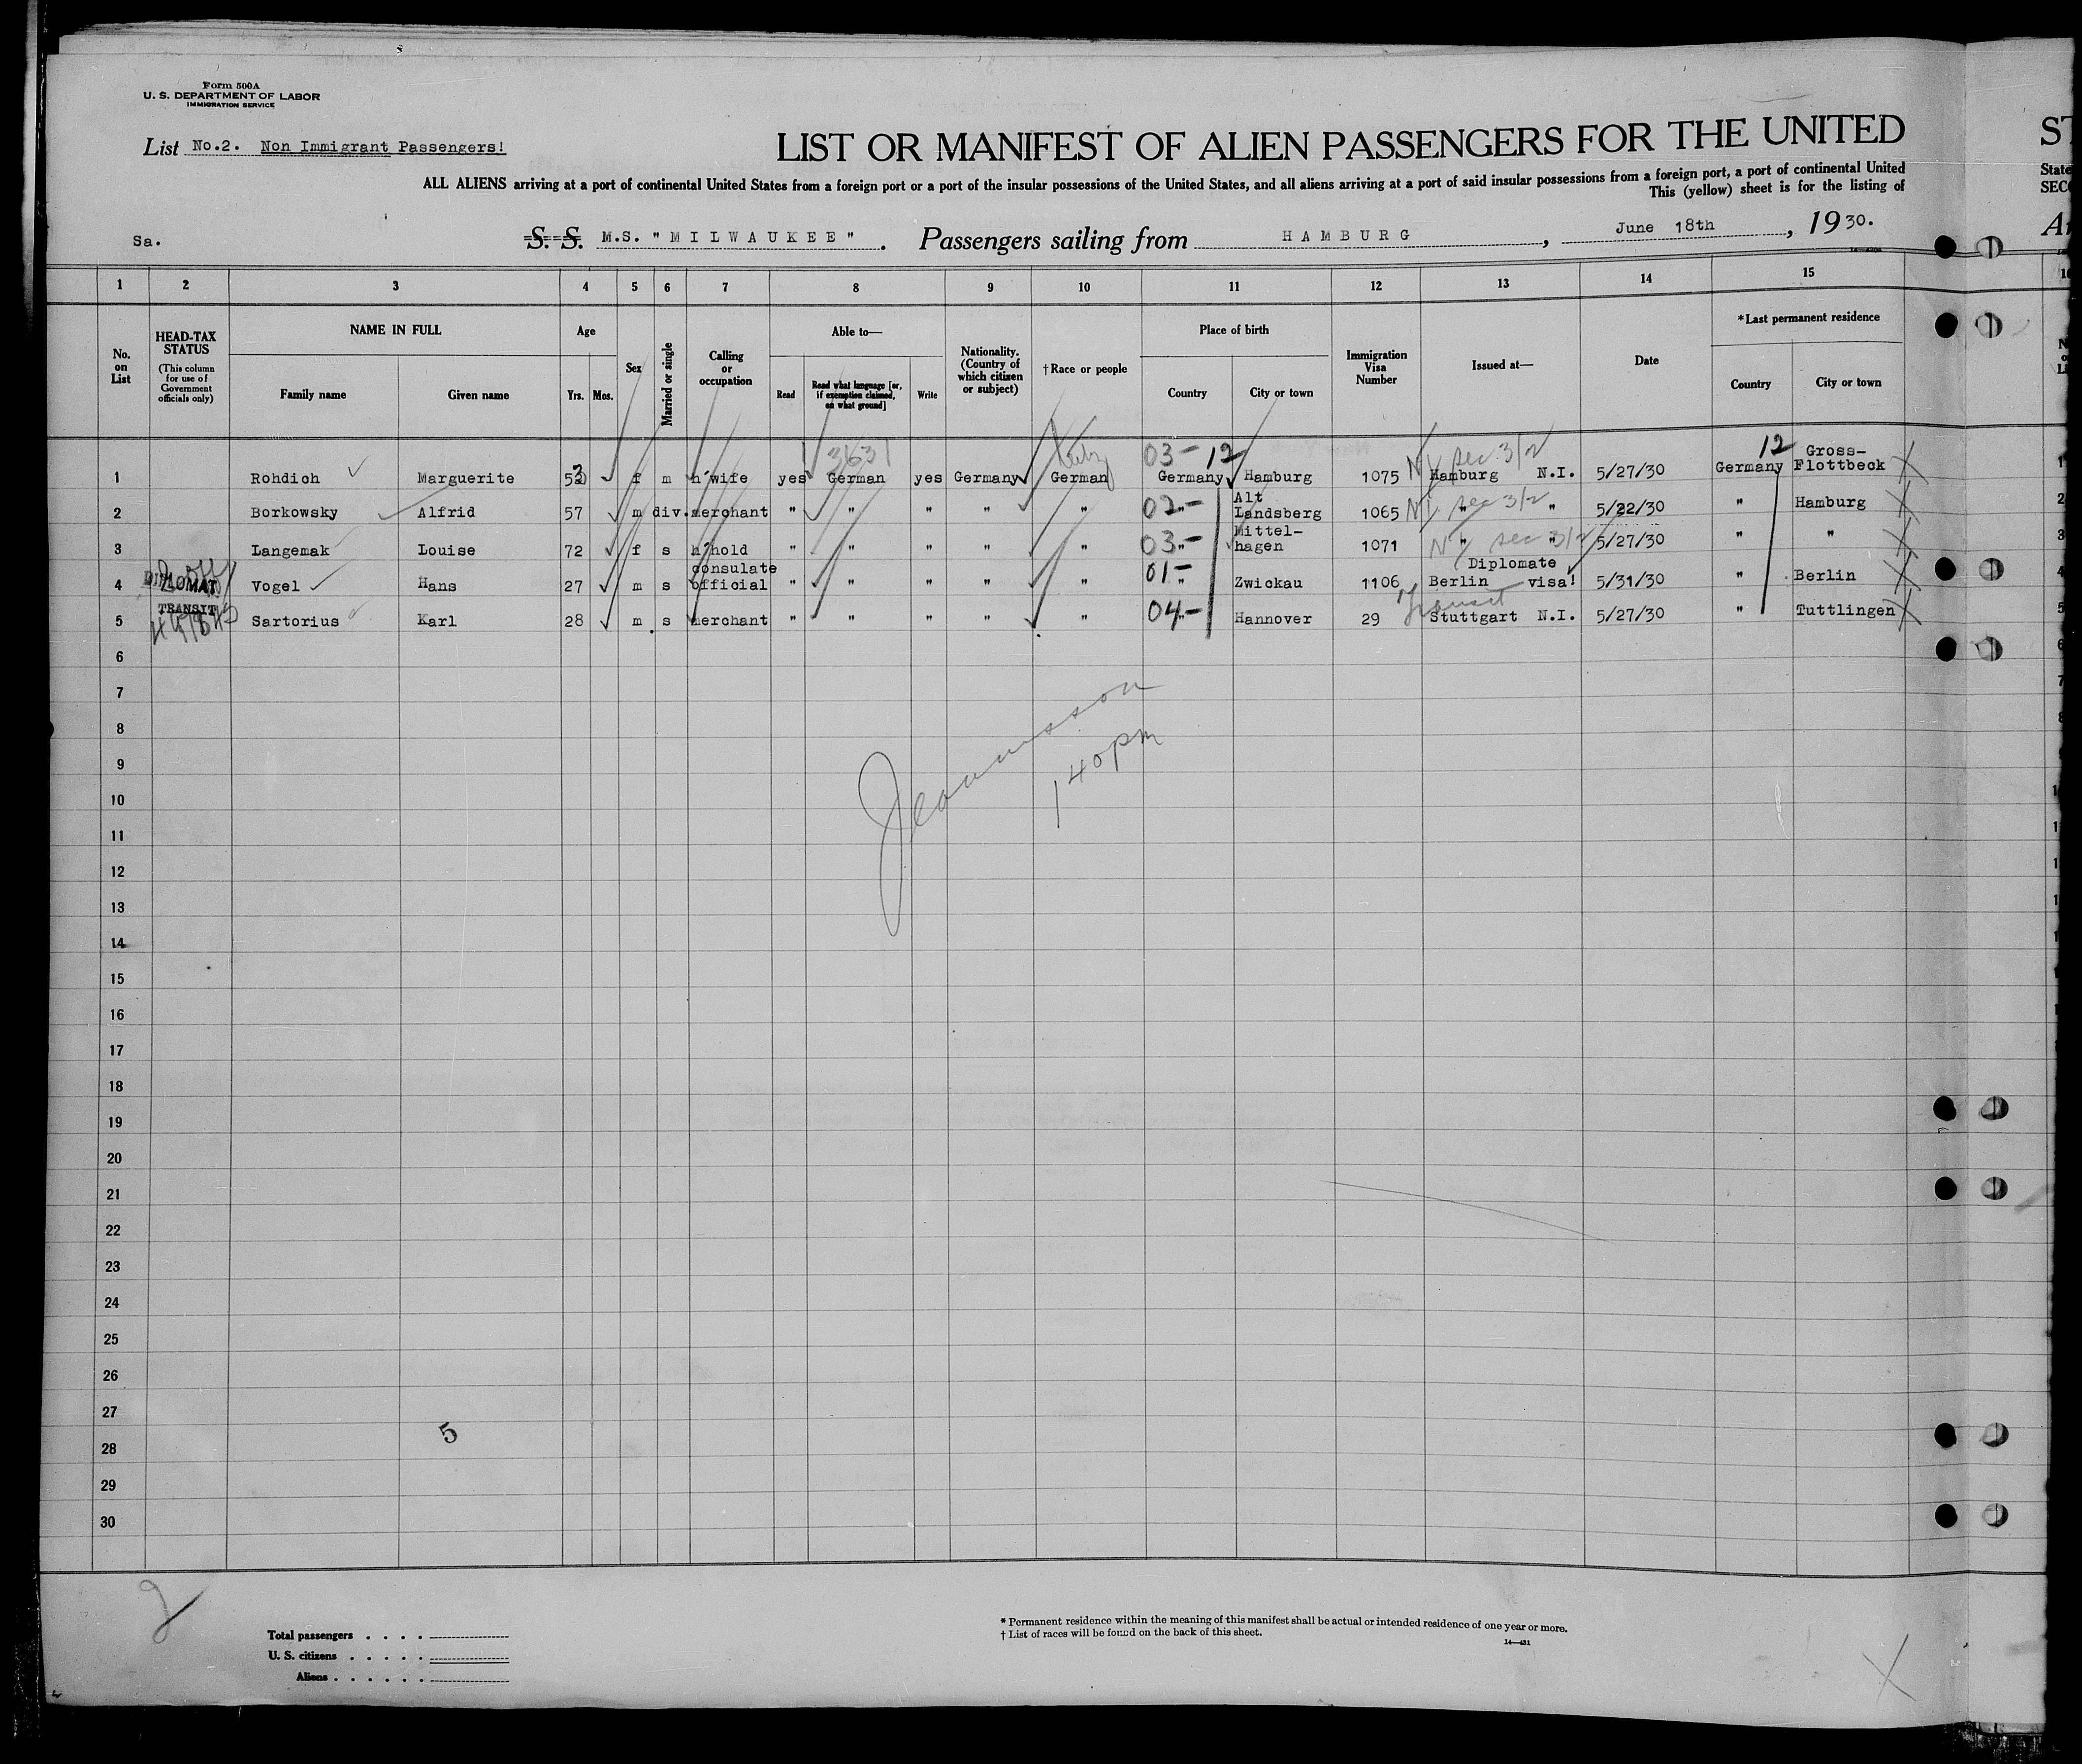 Form 500A
U. S. DEPARTMENT OF LABOR
IMMIGRATION SERVICE
List No.2. Non Immigrant Passengers!
LIST OR MANIFEST OF ALIEN PASSENGERS FOR THE UNITED
ST
ALL ALIENS arriving at a port of continental United States from a foreign port or a port of the insular possessions of the United States, and all aliens arriving at a port of said insular possessions from a foreign port, a port of continental United
State
This (yellow) sheet is for the listing of
SEC
Sa.
S. S. M.S. "MILWAUKEE". Passengers sailing from HAMBURG, June 18th, 1930.
1 2 3 4 5 6 7 8 9 10 11 12 13 14 15
No. on List
HEAD-TAX STATUS
(This column for use of Government officials only)
NAME IN FULL
Family name Given name
Age
Yrs. Mos.
Sex
Married or single
Calling or occupation
Able to—
Read
Read what language [or, if exemption claimed, on what ground]
Write
Nationality. (Country of which citizen or subject)
†Race or people
Place of birth
Country City or town
Immigration Visa Number
Issued at—
Date
*Last permanent residence
Country City or town
3631 03- 12 NY sec 3/2 12
1 Rohdich Marguerite 52 f m h'wife yes German yes Germany German Germany Hamburg 1075 Hamburg N.I. 5/27/30 Germany Gross-Flottbeck
2 Borkowsky Alfrid 57 m div. merchant " " " " " 02- " Alt Landsberg 1065 NY sec 3/2 " " 5/22/30 " Hamburg
3 Langemak Louise 72 f s h'hold " " " " " 03- " Mittel-hagen 1071 NY sec 3/2 " " 5/27/30 " "
DIPLOMAT
4 Vogel Hans 27 m s consulate official " " " " " 01- " Zwickau 1106 Berlin Diplomate visa! 5/31/30 " Berlin
TRANSIT
5 Sartorius Karl 28 m s merchant " " " " " 04- " Hannover 29 Transit Stuttgart N.I. 5/27/30 " Tuttlingen
6
7
8
9
10
11
12
13
14
15
16
17
18
19
20
21
22
23
24
25
26
27
28
29
30
140pm
5
2
Total passengers . . . .
U. S. citizens . . . . .
Aliens . . . . . .
* Permanent residence within the meaning of this manifest shall be actual or intended residence of one year or more.
† List of races will be found on the back of this sheet.
14—431